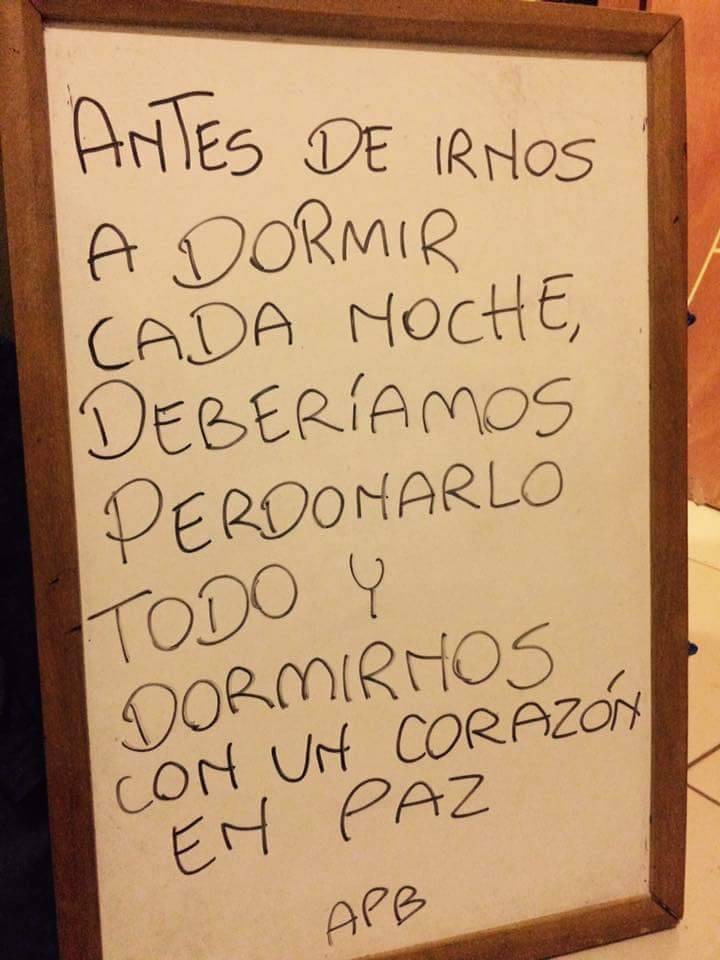 ANTES DE IRNOS
A DORMIR
CADA NOCHE,
DEBERÍAMOS
PERDONARLO
TODO Y
DORMIRNOS
CON UN CORAZÓN
EN PAZ
APB